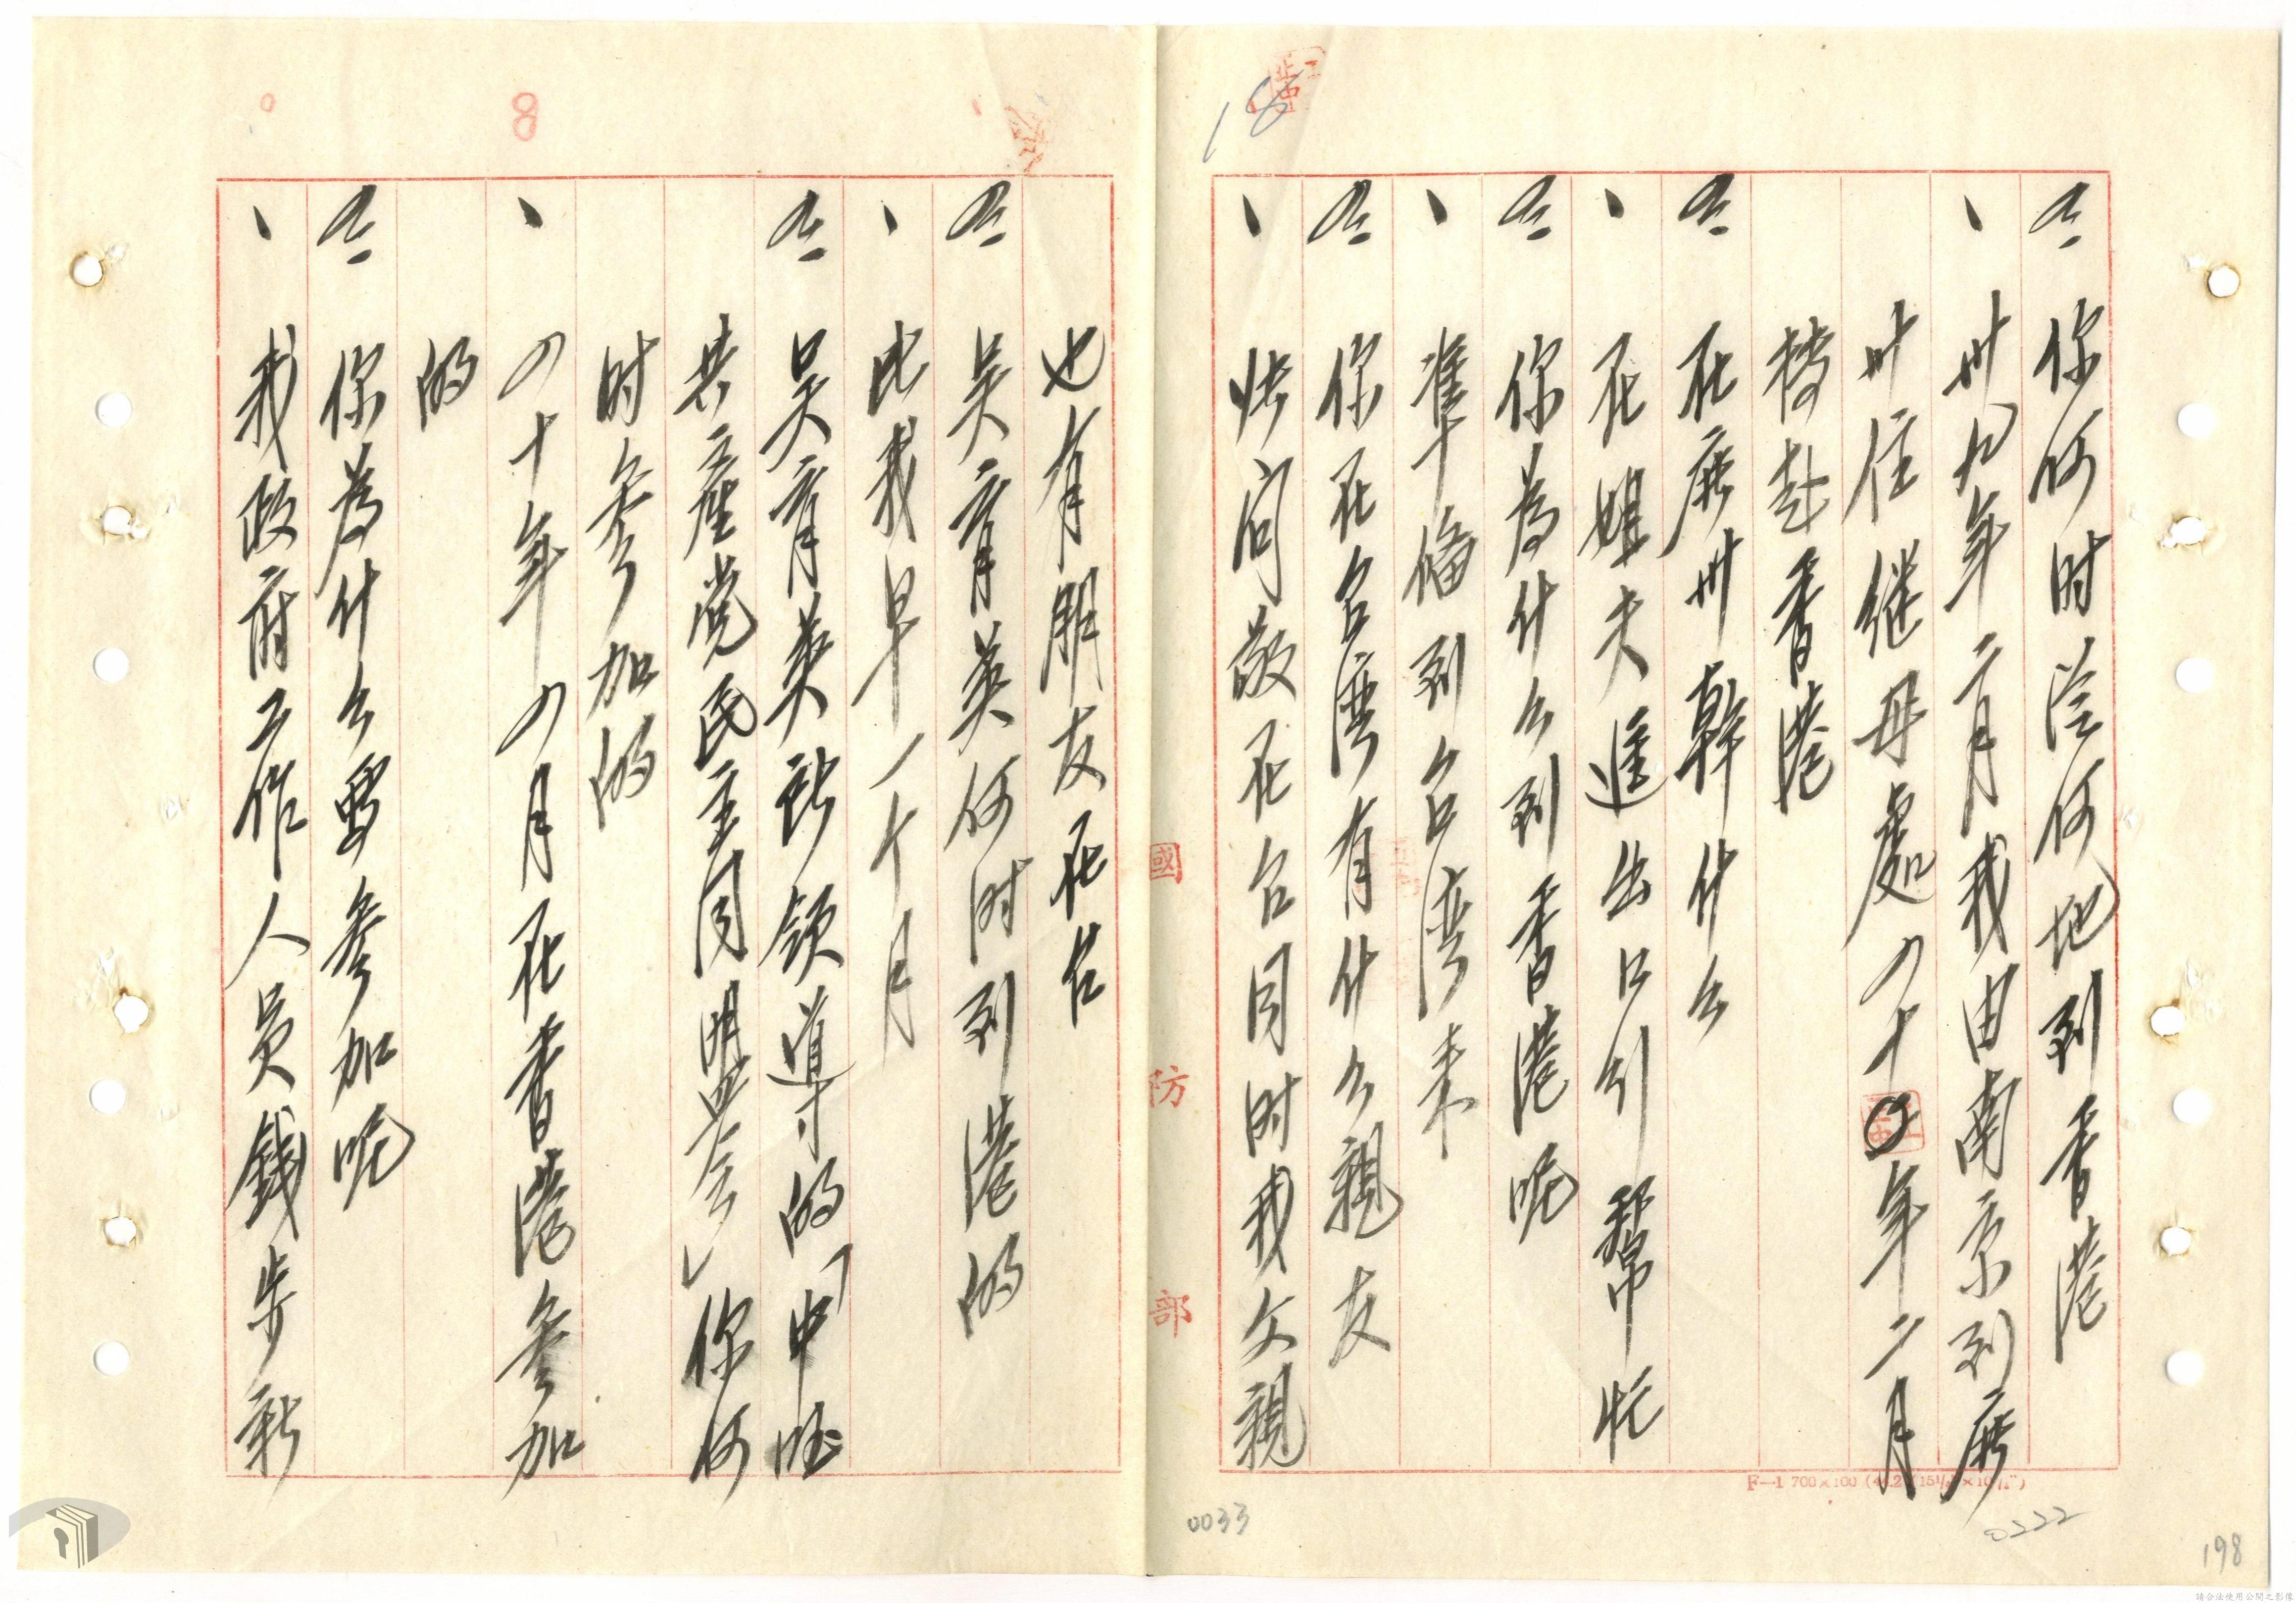 18
问 你何时從何地到香港
、 卅九年二月我由南京到廣
州住继母處四十〇年二月
轉赴香港
问 在廣州幹什么
、 在姐夫進出口行幫忙
问 你為什么到香港呢
、 準備到台湾来
问 你在台湾有什么親友
、 伙问敬在台同时我父親
國防部
F—1 700×100
0222
0033
198
8
也有朋友在台
问 吴育英何时到港的
、 比我早一个月
问 吴育英所领导的「中国
共產党民主同盟会」你何
时参加的
、 四十年四月在香港参加
的
问 你為什么要参加呢
、 我政府工作人员錢步新
請合法使用公開之影像